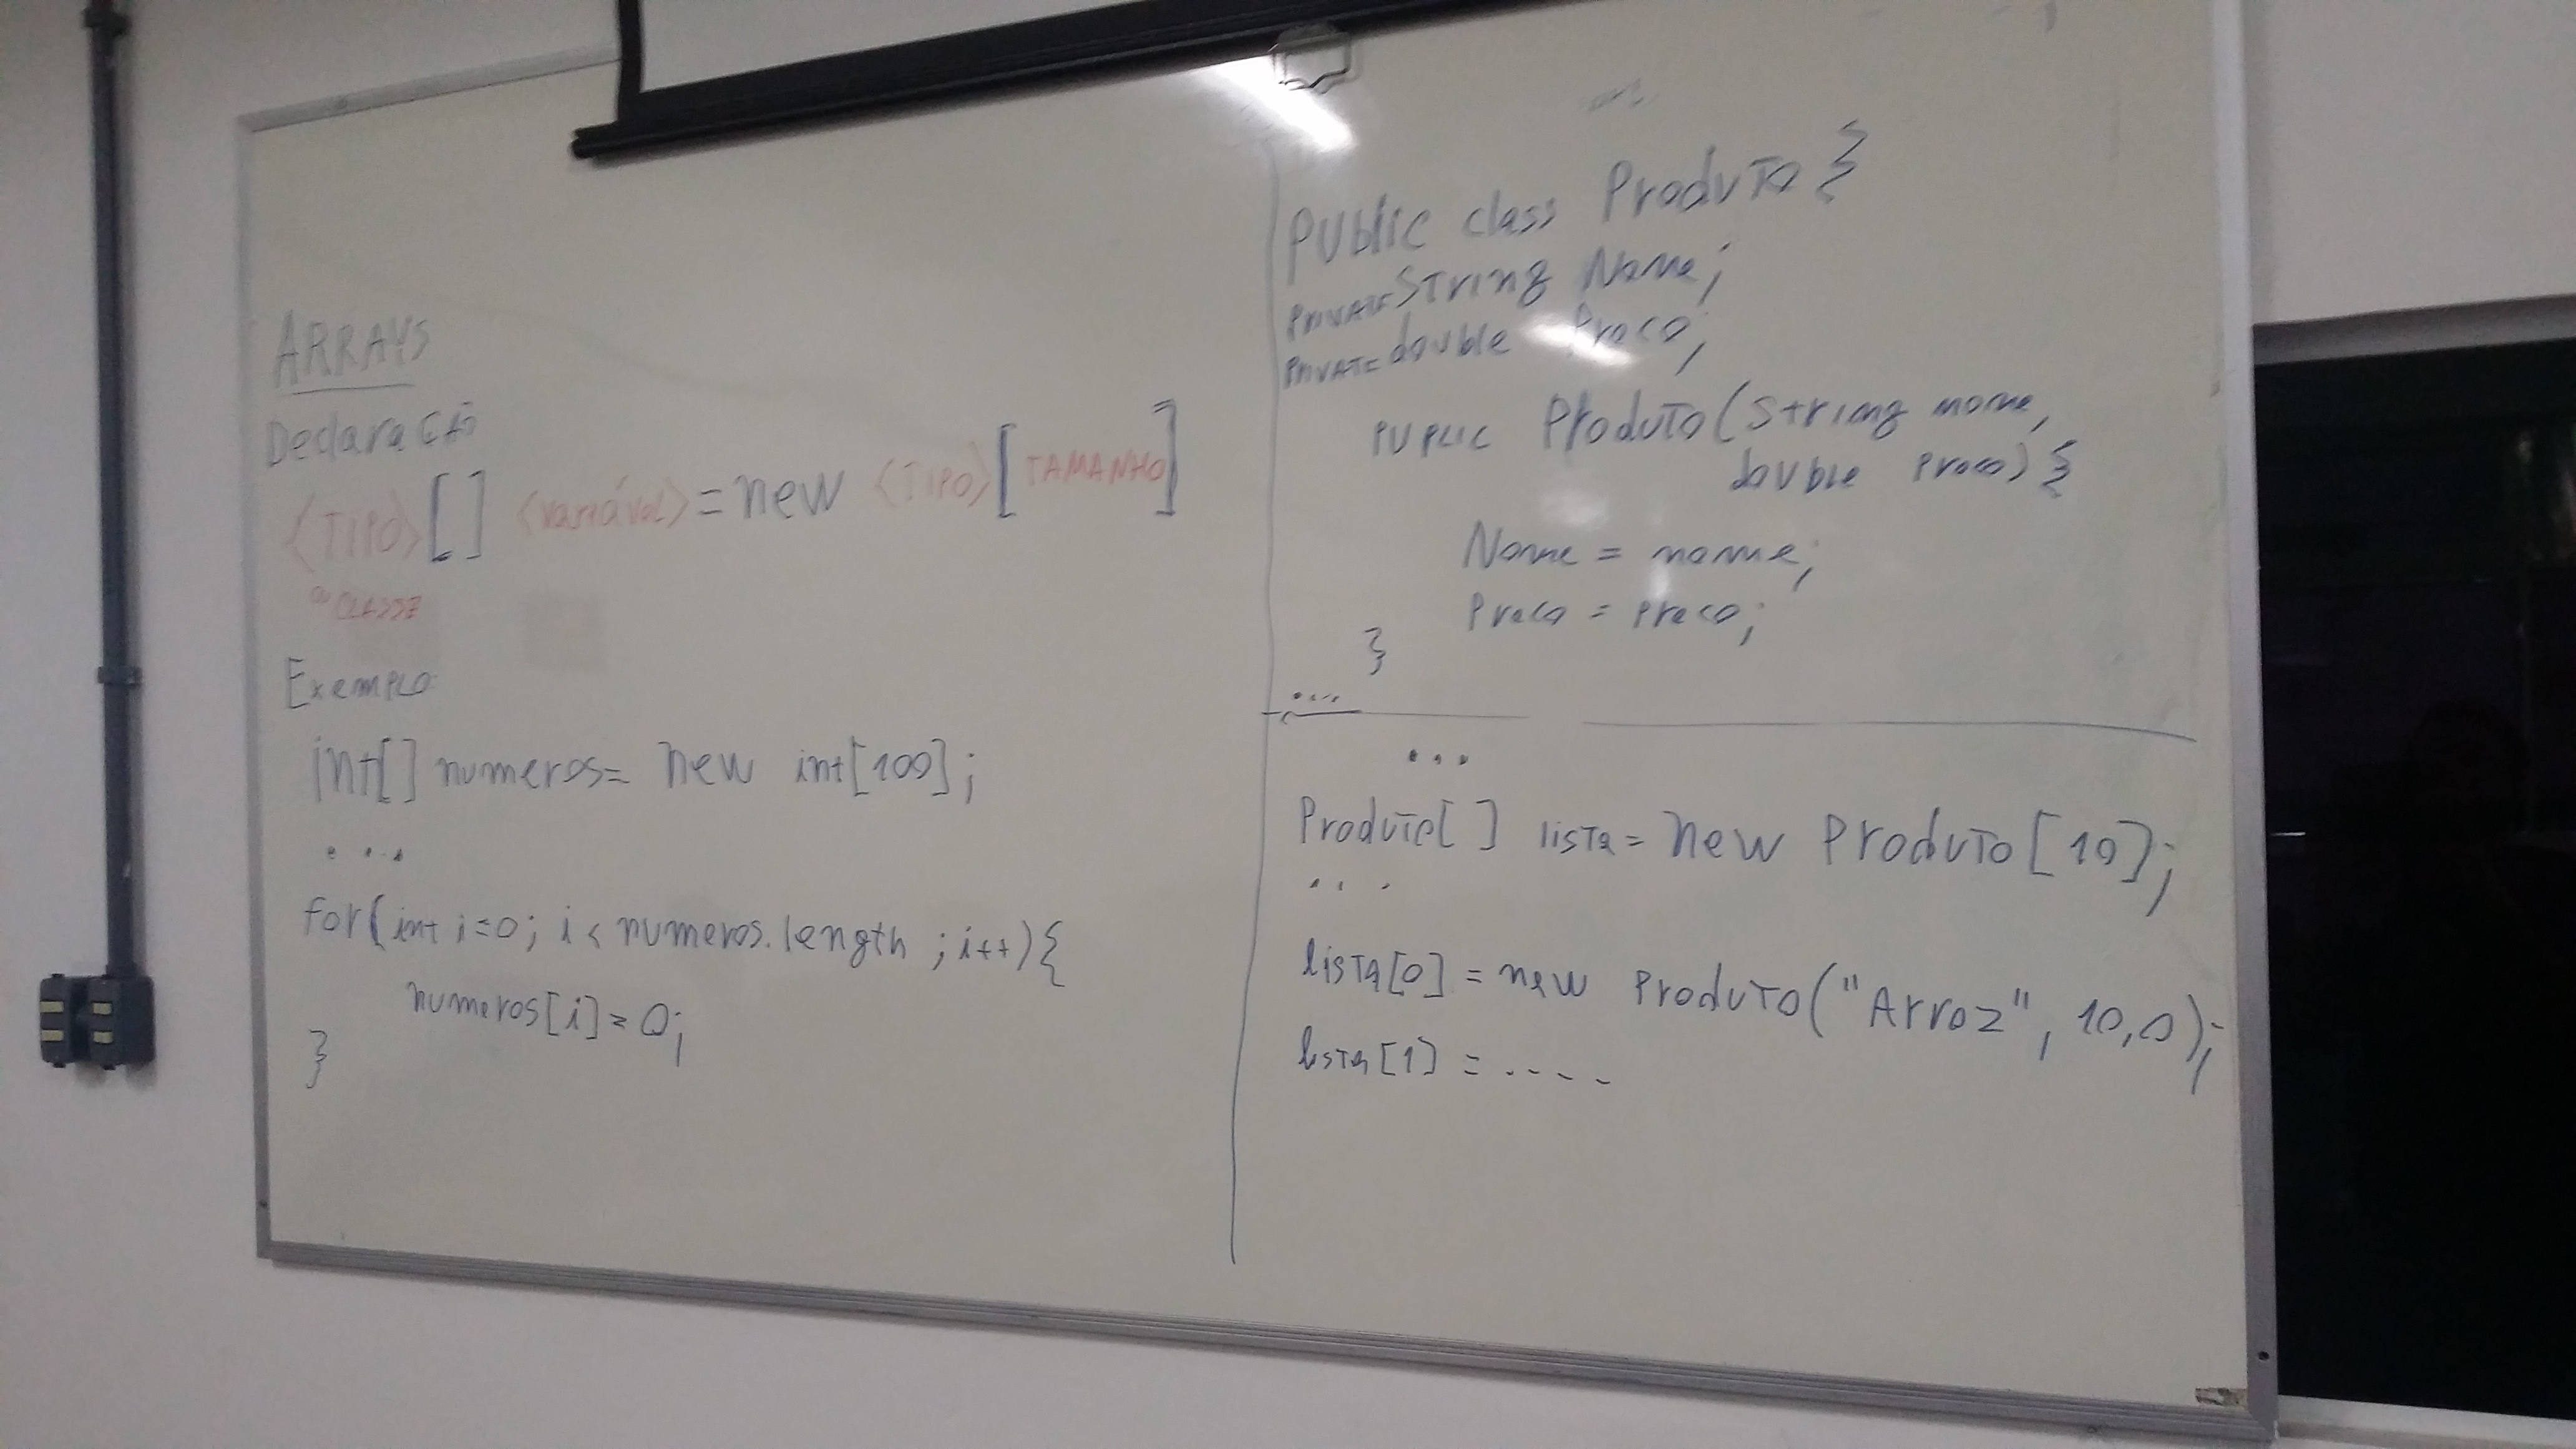 ARRAYS
Declaração
<TIPO>[] <variável> = new <TIPO>[TAMANHO]
ou CLASSE
Exemplo:
int[] numeros = new int[100];
...
for(int i=0; i < numeros.length ; i++){
numeros[i]= 0;
}
Public class Produto {
PRIVATE String Nome;
PRIVATE double Preco;
PUPLIC Produto(String nome,
double Preco) {
Nome = nome;
Preco = preco;
}
....
...
Produto[ ] lista = new Produto[10];
...
lista[0] = new Produto("Arroz", 10,0);
lista[1] = ....